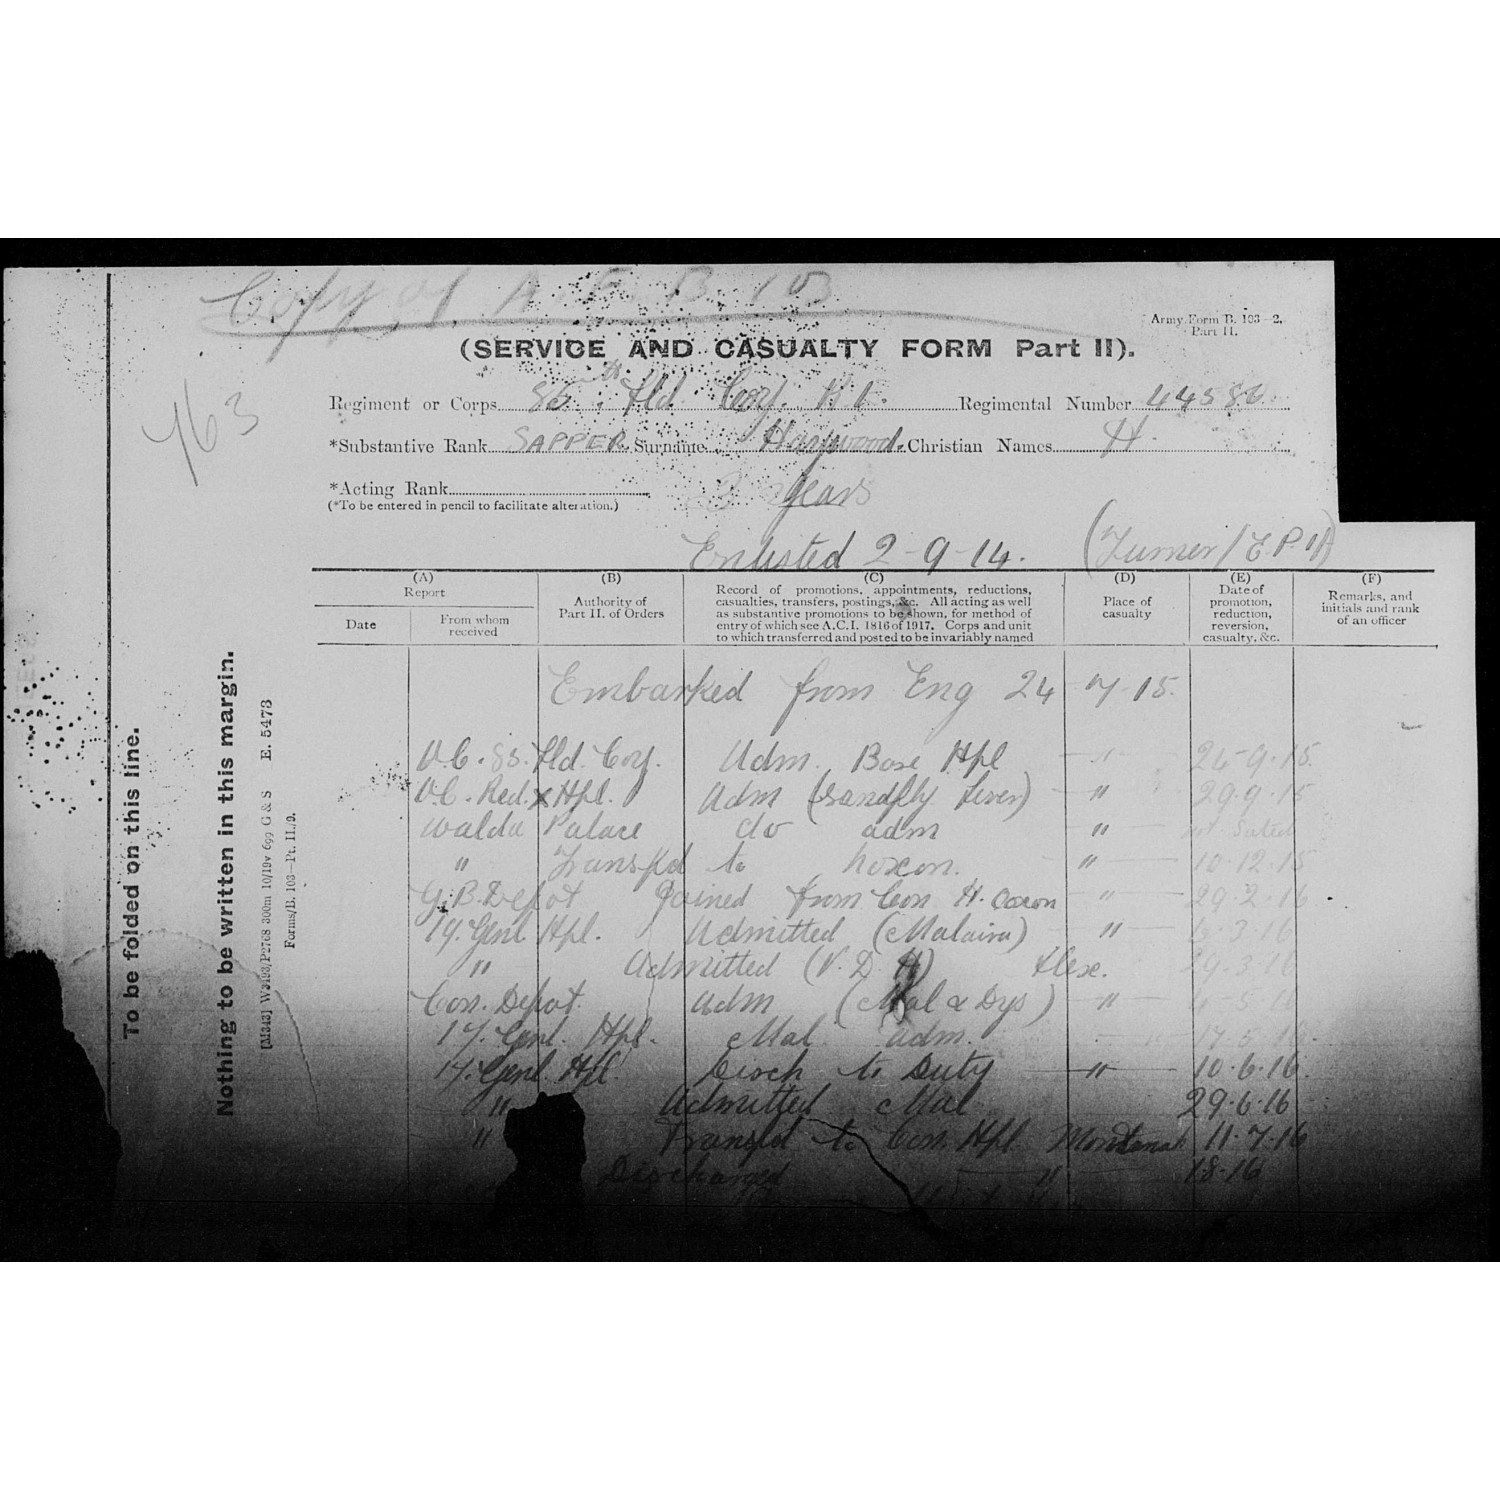 Copy of A.F. B. 103
Army Form B. 103—2.
Part II.
(SERVICE AND CASUALTY FORM Part II).
Regiment or Corps 85th Fld Coy. R.E. Regimental Number 44586
*Substantive Rank SAPPER Surname Haywood. Christian Names H.
*Acting Rank
3 years
(*To be entered in pencil to facilitate alteration.)
Enlisted 2-9-14. (Turner/E.P.
763
(A)
Report
(B)
Authority of
Part II. of Orders
(C)
Record of promotions, appointments, reductions,
casualties, transfers, postings, &c. All acting as well
as substantive promotions to be shown, for method of
entry of which see A.C.I. 1816 of 1917. Corps and unit
to which transferred and posted to be invariably named
(D)
Place of
casualty
(E)
Date of
promotion,
reduction,
reversion,
casualty, &c.
(F)
Remarks, and
initials and rank
of an officer
Date
From whom
received
Embarked from Eng 24 - 7 - 15.
O.C. 85. Fld. Coy. Adm. Base Hpl " 9.15.
O.C. Red. X Hpl. Adm (Sandfly Fever) " 29.9.15
Walda Palace do adm " not dated
" Transfd to " 10.12.15
G.B. Depot Joined from Con. H. " 29.2.16.
19. Genl. Hpl. Admitted (Malaira) " 3.16
" Admitted (V.D.H) Alex. 29.3.16
Con. Depot. adm (Mal & Dys) " 5.16
17. Genl. Hpl. Mal adm. " 17.5.16
17. Genl. Hpl. Disch to Duty " 10.6.16.
" Admitted Mal 29.6.16
" Transfd to Con. Hpl Montanah 11.7.16
Discharged " 18.16
To be folded on this line.
Nothing to be written in this margin.
[M343] W3193/P2768 300m 10/19v 699 G & S E. 5473
Forms/B. 103—Pt. II./9.